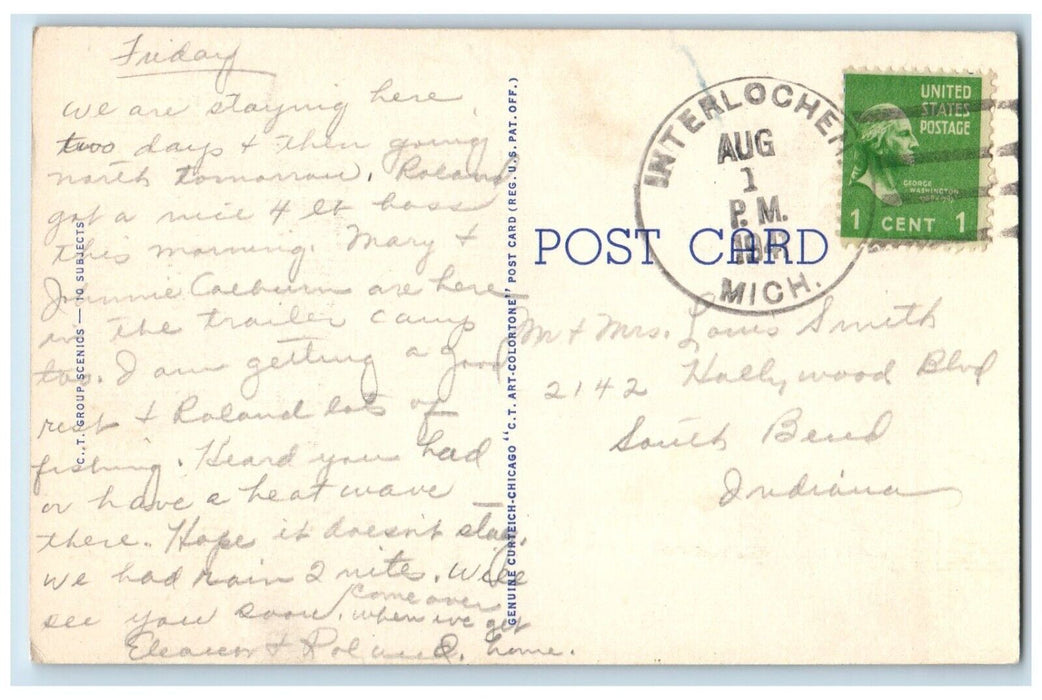 Friday
we are staying here
two days + then going
north tomorrow. Roland
got a nice 4 lb bass
this morning. Mary +
Johnnie are here
in the trailer camp
too. I am getting a good
rest + Roland lots of
fishing. Heard you had
or have a heat wave
there. Hope it doesn't stay.
We had rain 2 nites. Will
see you soon. come over
when we get
Eleanor + Roland. home.
C. T. GROUP SCENICS — 10 SUBJECTS
GENUINE CURTEICH-CHICAGO "C.T. ART-COLORTONE" POST CARD (REG. U.S. PAT. OFF.)
POST CARD
INTERLOCHEN
AUG
1
P.M.
MICH.
UNITED
STATES
POSTAGE
GEORGE
WASHINGTON
1 CENT 1
Mr + Mrs. Louis Smith
2142 Hollywood Blvd
South Bend
Indiana